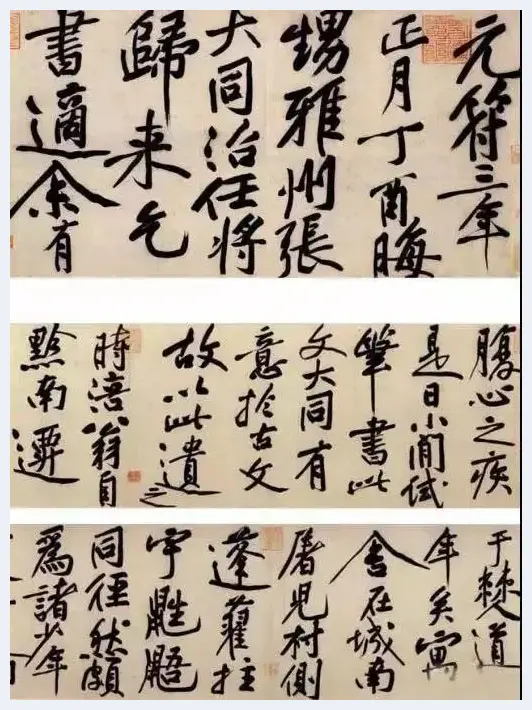 元符三年
正月丁酉晦
甥雅州張
大同治任將
歸来乞
書適余有
腹心之疾
是日小閒試
筆書此
文大同有
意於古文
故以此遺之
時涪翁自
黔南遷
于僰道
年矣寓
舍在城南
屠兒村側
蓬藋拄
宇鼪鼯
同徑然頗
爲諸少年